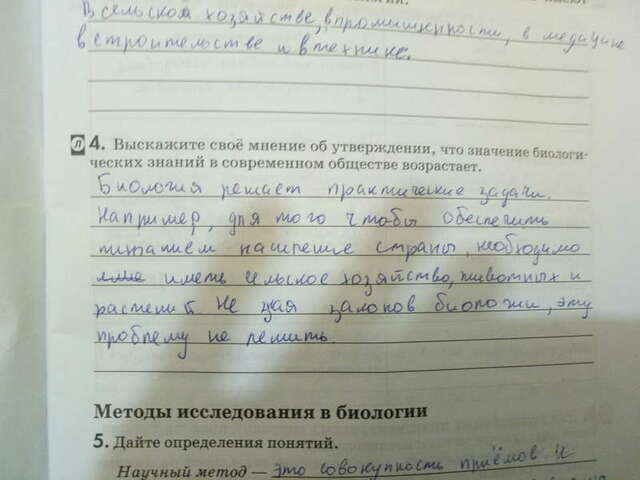 В сельском хозяйстве, в промышленности, в медицине
в строительстве и в технике.
л 4. Выскажите своё мнение об утверждении, что значение биологи-
ческих знаний в современном обществе возрастает.
Биология решает практические задачи.
Например, для того чтобы обеспечить
питанием население страны, необходимо
иметь сельское хозяйство, животных и
растений. Не зная законов биологии, эту
проблему не решить.
Методы исследования в биологии
5. Дайте определения понятий.
Научный метод — это совокупность приёмов и